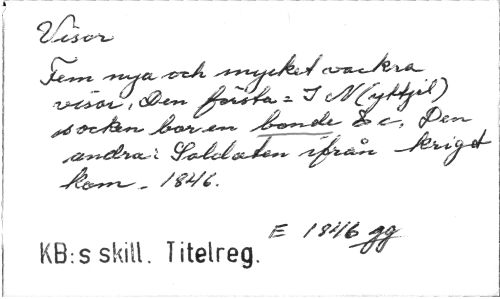 Visor
Fem nya och mycket vackra
visor, Den första = I N(yttjil)
socken bor en bonde &c, Den
andra: Soldaten ifrån kriget
kom. 1846.
E 1846 gg
KB:s skill. Titelreg.